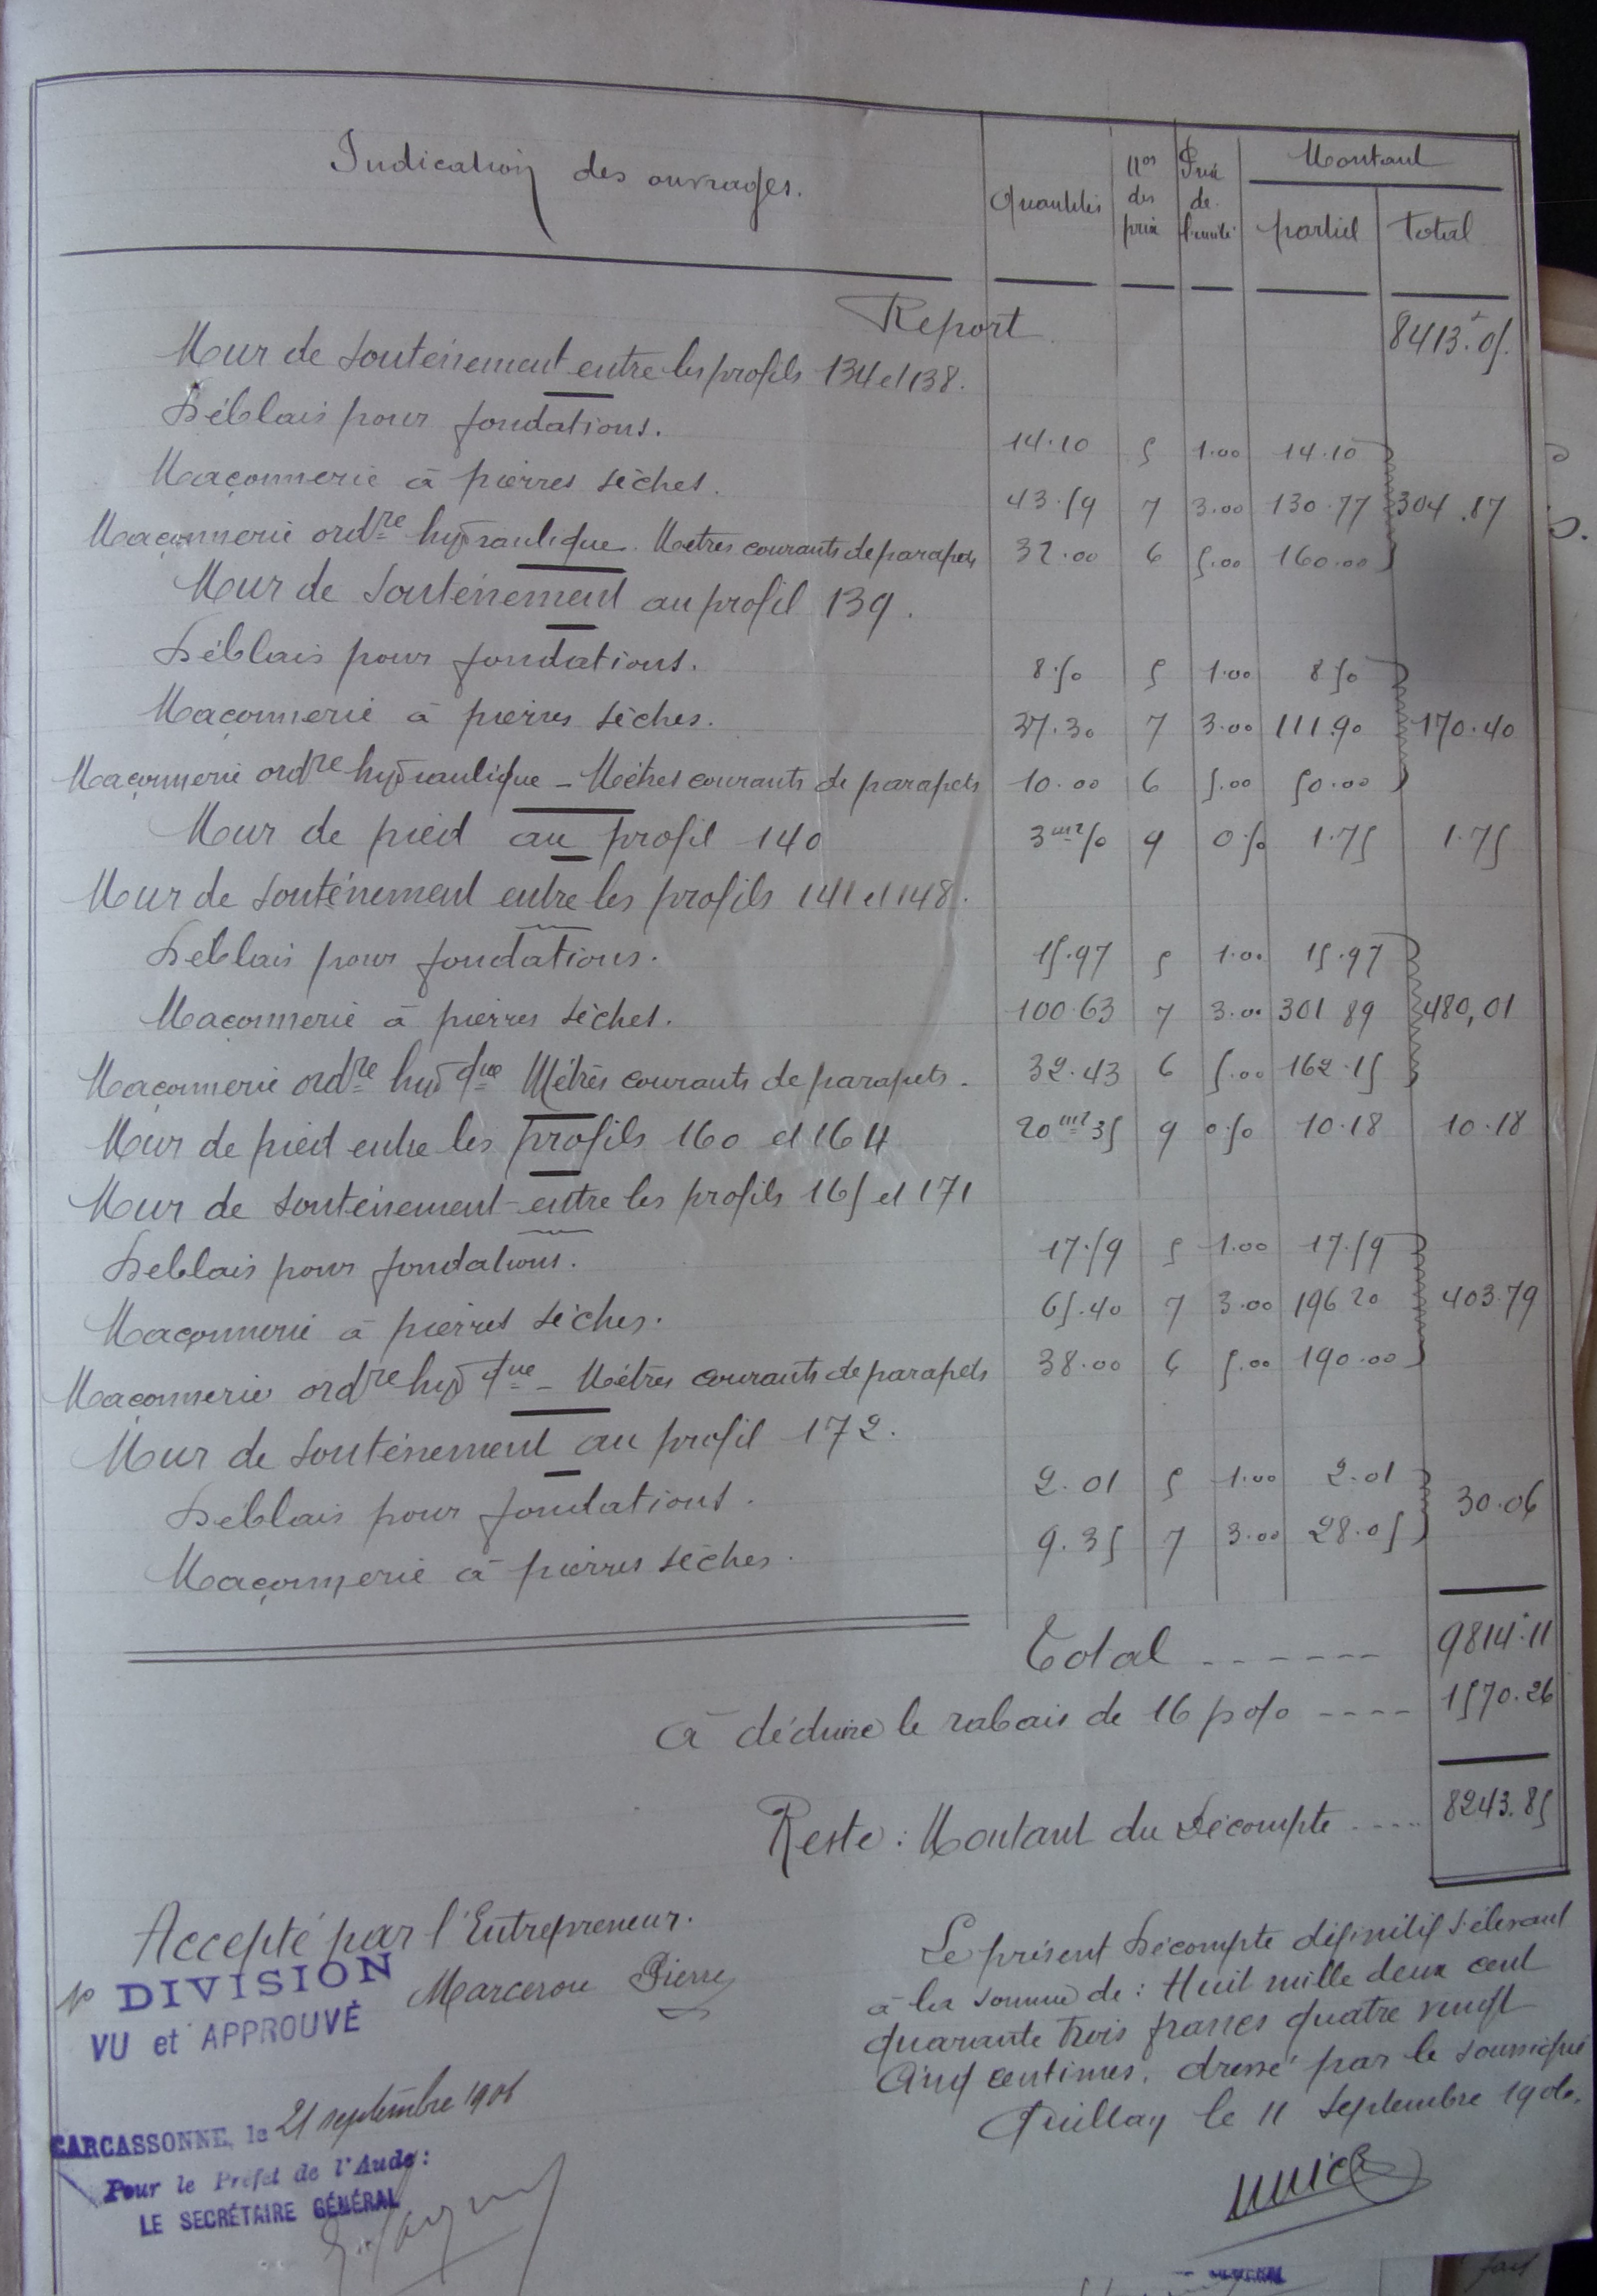 Indication des ouvrages. Quantités Nos des prix Prix de l'unité Montant partiel Total
Report 8413.05
Mur de soutènement entre les profils 134 et 138.
Déblais pour fondations. 14.10 5 1.00 14.10
Maçonnerie à pierres sèches. 43.59 7 3.00 130.77 304.87
Maçonnerie ordre hydraulique. Mètres courants de parapets 32.00 6 5.00 160.00
Mur de soutènement au profil 139.
Déblais pour fondations. 8.50 5 1.00 8 50
Maçonnerie à pierres sèches. 37.30 7 3.00 111.90 170.40
Maçonnerie ordre hydraulique - Mètres courants de parapets 10.00 6 5.00 50.00
Mur de pied au profil 140 3m2 50 9 0 50 1.75 1.75
Mur de soutènement entre les profils 141 et 148.
Déblais pour fondations. 15.97 5 1.00 15.97
Maçonnerie à pierres sèches. 100.63 7 3.00 301 89 480,01
Maçonnerie ordre hydque Mètres courants de parapets. 32.43 6 5.00 162.15
Mur de pied entre les profils 160 et 164 20m2 35 9 0 50 10.18 10.18
Mur de soutènement entre les profils 165 et 171
Déblais pour fondations. 17.59 5 1.00 17.59
Maçonnerie à pierres sèches. 65.40 7 3.00 196 20 403.79
Maçonnerie ordre hydque - Mètres courants de parapets 38.00 6 5.00 190.00
Mur de soutènement au profil 172.
Déblais pour fondations. 2.01 5 1.00 2.01
Maçonnerie à pierres sèches. 9.35 7 3.00 28.05 30.06
Total ------ 9814.11
à déduire le rabais de 16 p % ---- 1570.26
Reste : Montant du Décompte ..... 8243.85
Accepté par l'Entrepreneur.
Marcerou Pierre
DIVISION
VU et APPROUVÉ
CARCASSONNE, le 21 septembre 1906
Pour le Préfet de l'Aude :
LE SECRÉTAIRE GÉNÉRAL
Le présent Décompte définitif s'élevant
à la somme de : Huit mille deux cent
quarante trois francs quatre vingt
cinq centimes, dressé par le soussigné
Quillan le 11 Septembre 1906.